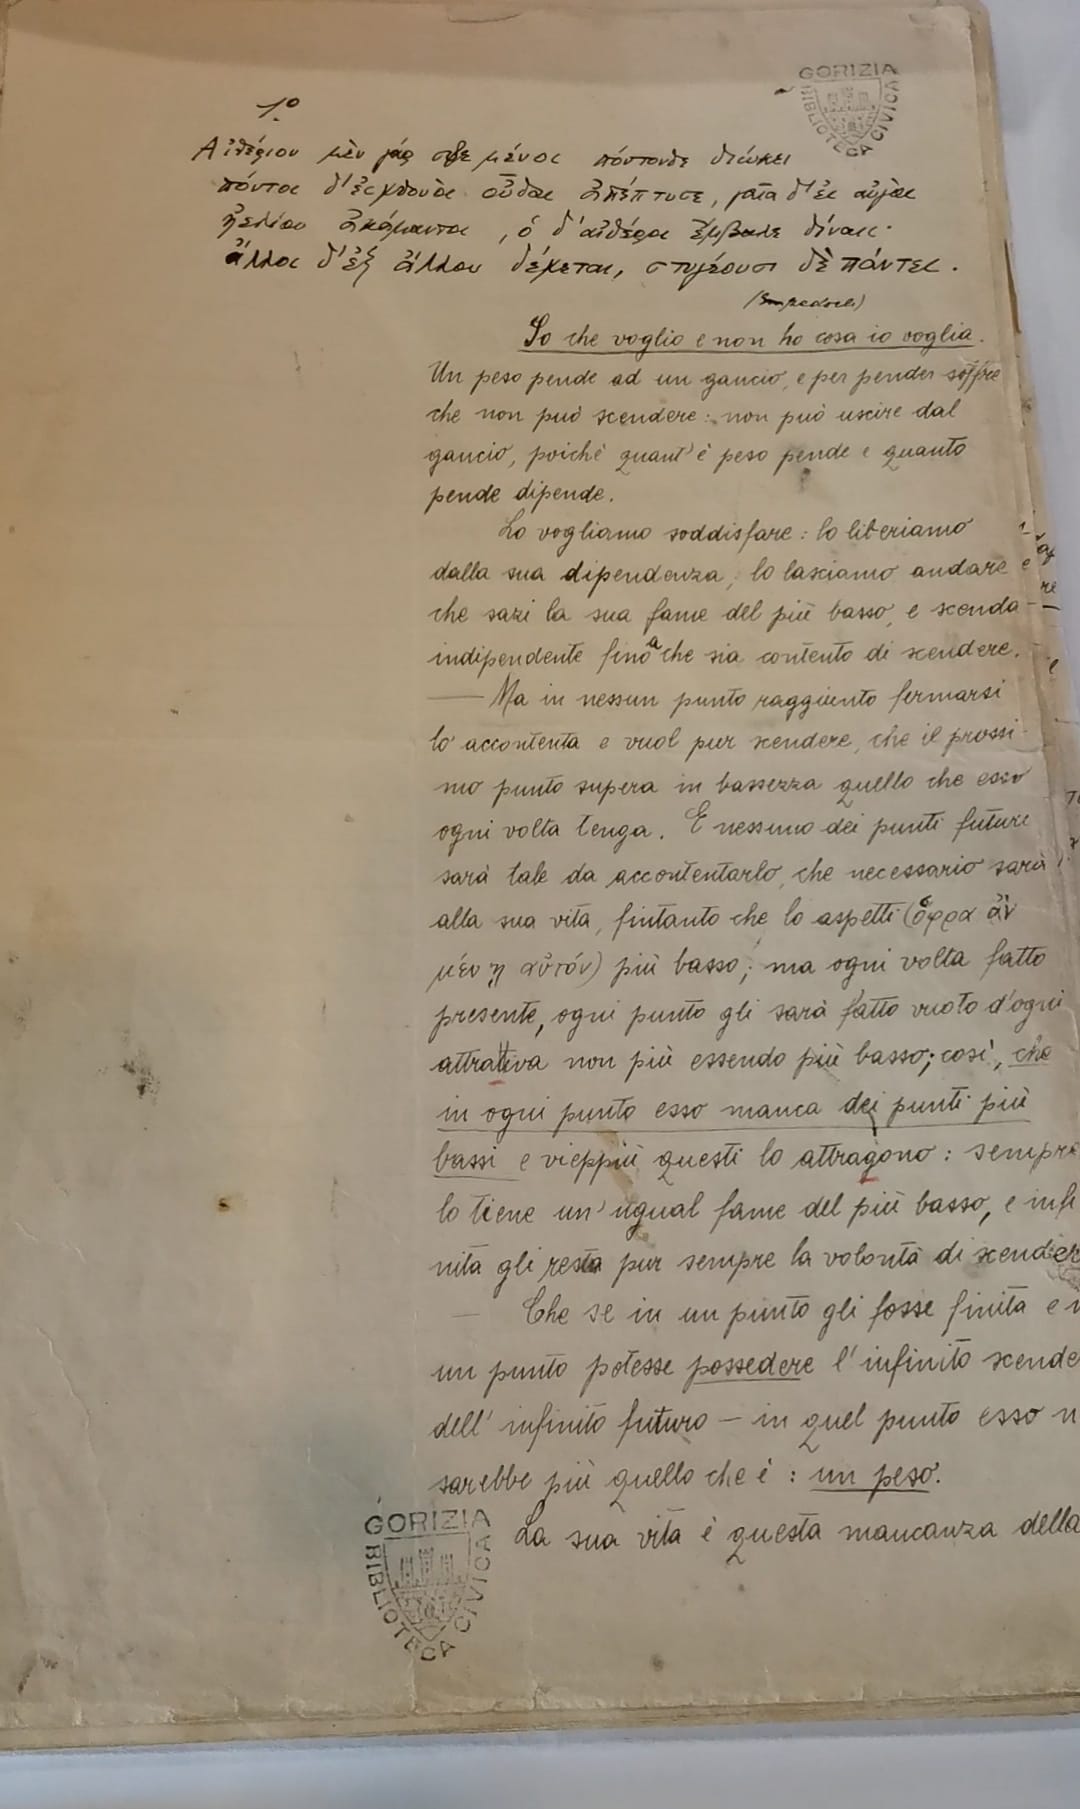 1.º
GORIZIA
BIBLIOTECA CIVICA
Αἰθέριον μὲν γάρ σφε μένος πόντονδε διώκει
πόντος δ'ἐς χθονὸς οὖδας ἀπέπτυσε, γαῖα δ'ἐς αὐγὰς
ἠελίου ἀκάμαντος, ὁ δ'αἰθέρος ἔμβαλε δίναις·
ἄλλος δ'ἐξ ἄλλου δέχεται, στυγέουσι δὲ πάντες.
(Empedocle)
So che voglio e non ho cosa io voglia.
Un peso pende ad un gancio, e per pender soffre
che non può scendere: non può uscire dal
gancio, poiché quant'è peso pende e quanto
pende dipende.
Lo vogliamo soddisfare: lo liberiamo
dalla sua dipendenza, lo lasciamo andare e
che sazi la sua fame del più basso, e scenda
indipendente fino a che sia contento di scendere.
— Ma in nessun punto raggiunto fermarsi
lo accontenta e vuol pur scendere, che il prossi-
mo punto supera in bassezza quello che esso
ogni volta tenga. E nessuno dei punti futuri
sarà tale da accontentarlo, che necessario sarà
alla sua vita, fintanto che lo aspetti (ὄφρα ἂν
μένῃ αὐτόν) più basso; ma ogni volta fatto
presente, ogni punto gli sarà fatto vuoto d'ogni
attrattiva non più essendo più basso; così, che
in ogni punto esso manca dei punti più
bassi e vieppiù questi lo attragono: sempre
lo tiene un'ugual fame del più basso, e infi
nita gli resta pur sempre la volontà di scender
— Che se in un punto gli fosse finita e
un punto potesse possedere l'infinito scende
dell'infinito futuro — in quel punto esso n
sarebbe più quello che è: un peso.
La sua vita è questa mancanza della
GORIZIA
BIBLIOTECA CIVICA